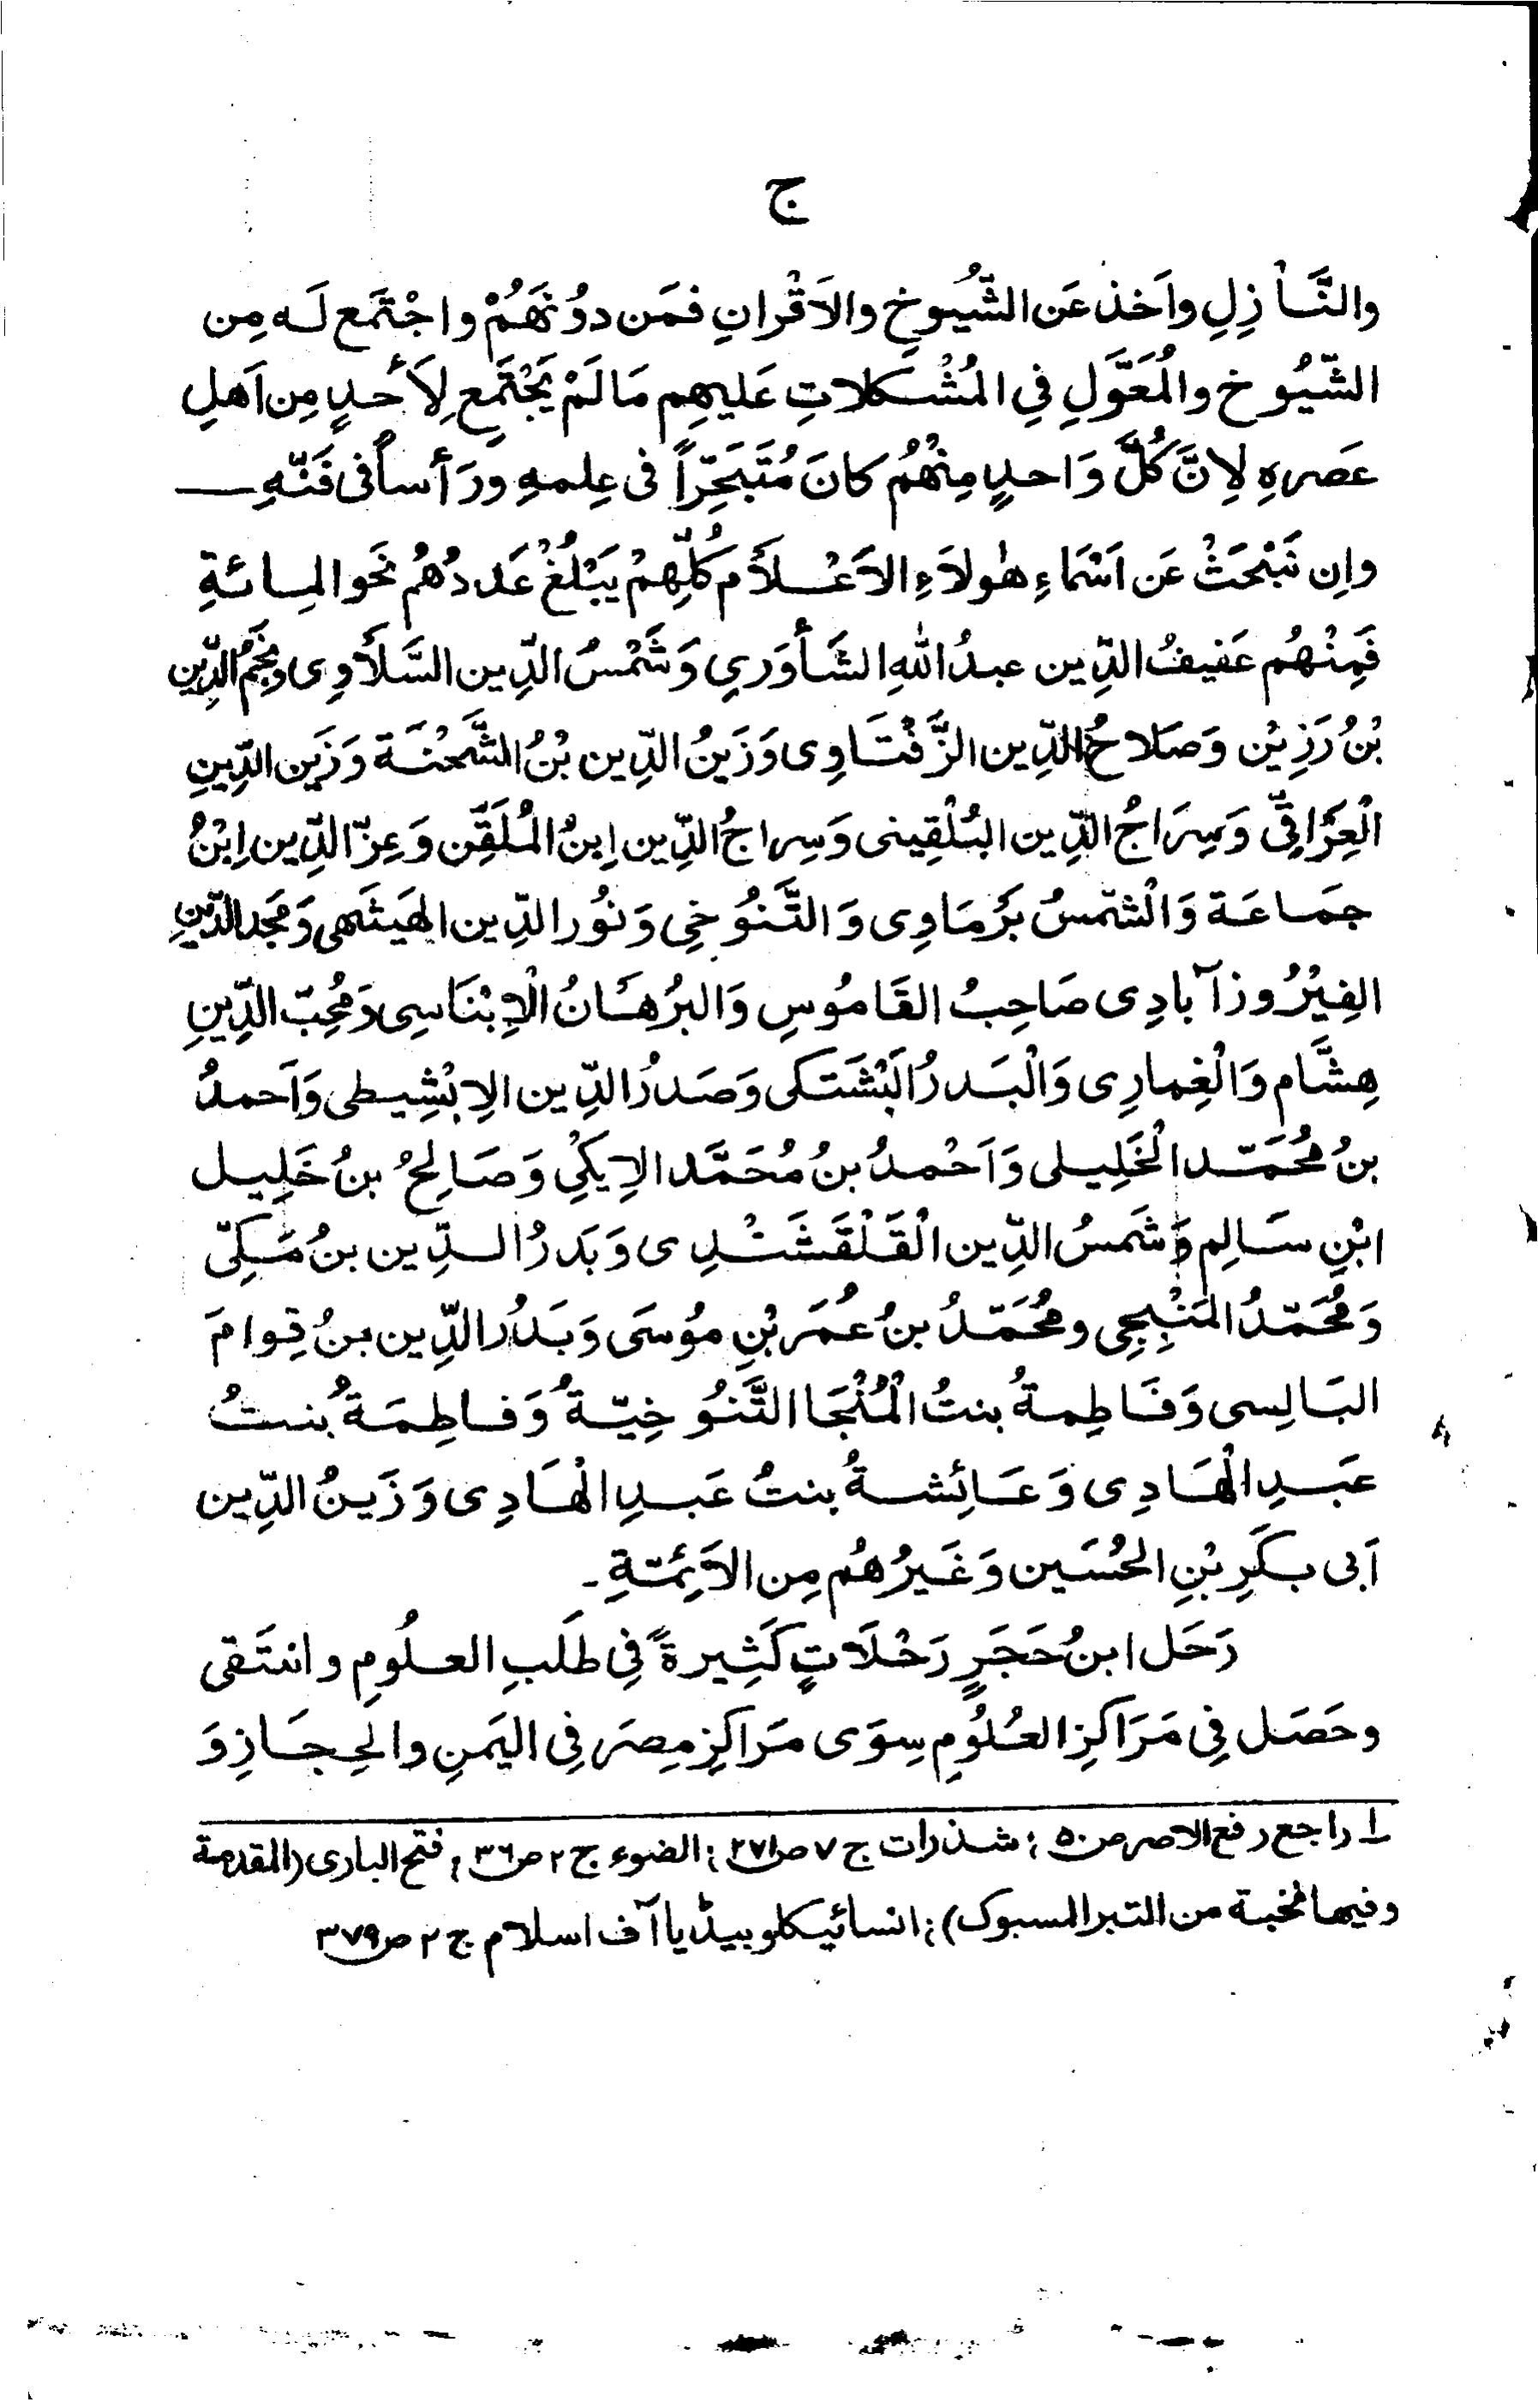 ج
والنَّاْزِلِ واَخذ عَن الشُّيُوخِ والاَقْرانِ فمَن دوُنَهَُمْ واجْتَمَع لَـه مِن
الشُّيُوخ والمُعَوَّلِ فِي المُشْكلاتِ عَليهِم مَا لَمْ يَجْتَمِع لِاَحدٍ مِن اَهلِ
عَصرهِ لِانَّ كُلَّ وَاحدٍ مِنْهُم كانَ مُتَبَحِّراً فى عِلمهِ ورَأساً فى فَنّهِ ــــ
وإن نَبْحَثْ عَن اَسْمَاءِ هٰولاَءِ الاَعْلاَم كُلِّهِمْ يَبْلُغْ عَددُهُم نَحو المِـائـةِ
فَمِنْهُم عَفيفُ الدِّين عبدُ اللهِ الشَأوَرىِ وَشَمْسُ الدِّين السَّلاَوِى ونَجمُ الدِّينِ
بْنُ رَزِيْن وَصَلاحُ الدِّين الزَّفْتَاوِى وَزَينُ الدِّين بْنُ الشَّحْنَـة وَزَين الدِّينِ
الْعِرَاقِىّ وَسِرَاجُ الدِّين البُلْقِينى وَسِراجُ الدِّين اِبنُ المُلَقِّن وَعِزّ الدِّين اِبْنُ
جمَاعَـة وَالْشمّسُ بَرْمَاوِى وَالتَّنُوخىِ وَنُور الدِّين الهَيثَمى وَمَجد الدِّينِ
الفِيْرُوزآبادِى صَاحِبُ القَامُوسِ وَالبرُهَـانُ الْاِبْنَاسِى وَمُحِبّ الدِّينِ
هِشَّام وَالْغِمارِى وَالْبَـدرُ الَبْشَتكى وَصَدرُ الدِّين الاِبْشِيطى وَاَحمدُ
بنُ مُحَمّـد الْخَلِيلى وَاَحْمدُ بنُ مُحَمَّد الاِيَكِىْ وَصَالِحُ بنُ خَلِيـل
ابْنِ سَـالِم وَشَمسُ الدِّين الْقَلْقَشَنْدِى وَبَدرُ الـدِّين بنُ مَـكِىّ
وَمُحَمّدُ المَنْبِجِى ومُحَمّدُ بنُ عُمَر بْنِ مُوسَى وَبَدُر الدِّين بنُ قِوامَ
البَالِسى وَفَاطِمـةُ بنتُ الْمُنْجَا التَّنُوخِيّـةُ وَفـاطِمَـةُ بنـتُ
عَبـدِ الْهَادِى وَعَـائِشـةُ بنتُ عَبـدِ الْهَادِى وَزَيـنُ الدِّين
اَبى بـكَرِ بْنِ الحُسَين وَغَيرُهُم مِن الاَئِمّـةِ ـ
رَحَل ابنُ حَجَرٍ رَحْلَاتٍ كَثِيرةً فِي طَلَبِ العـلُومِ وانتَقى
وحَصَل فِي مَرَاكزِ العُلُومِ سِوَى مَرَاكزِ مِصَر فِى اليَمنِ والحِجَـازِ وَ
١ـ راجع رفع الاصر ص٥٠؛ شذرات ج ٧ ص٢٧١؛ الضوء ج ٢ ص٣٦؛ فتح البارى (المقدمة
وفيها نخبة من التبر المسبوك)؛ انسائيكلوبيڈيا آف اسلام ج ٢ ص٣٧٩